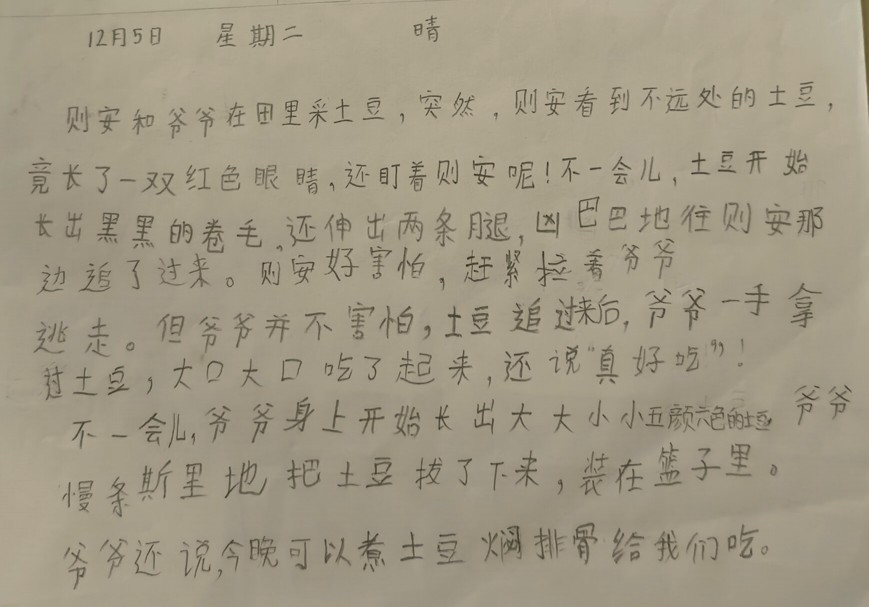 12月5日 星期二 晴
则安和爷爷在田里采土豆,突然,则安看到不远处的土豆,
竟长了一双红色眼睛,还盯着则安呢!不一会儿,土豆开始
长出黑黑的卷毛,还伸出两条腿,凶巴巴地往则安那
边追了过来。则安好害怕,赶紧拉着爷爷
逃走。但爷爷并不害怕,土豆追过来后,爷爷一手拿
过土豆,大口大口吃了起来,还说“真好吃”!
不一会儿,爷爷身上开始长出大大小小五颜六色的土豆,爷爷
慢条斯里地把土豆拔了下来,装在篮子里。
爷爷还说,今晚可以煮土豆焖排骨给我们吃。